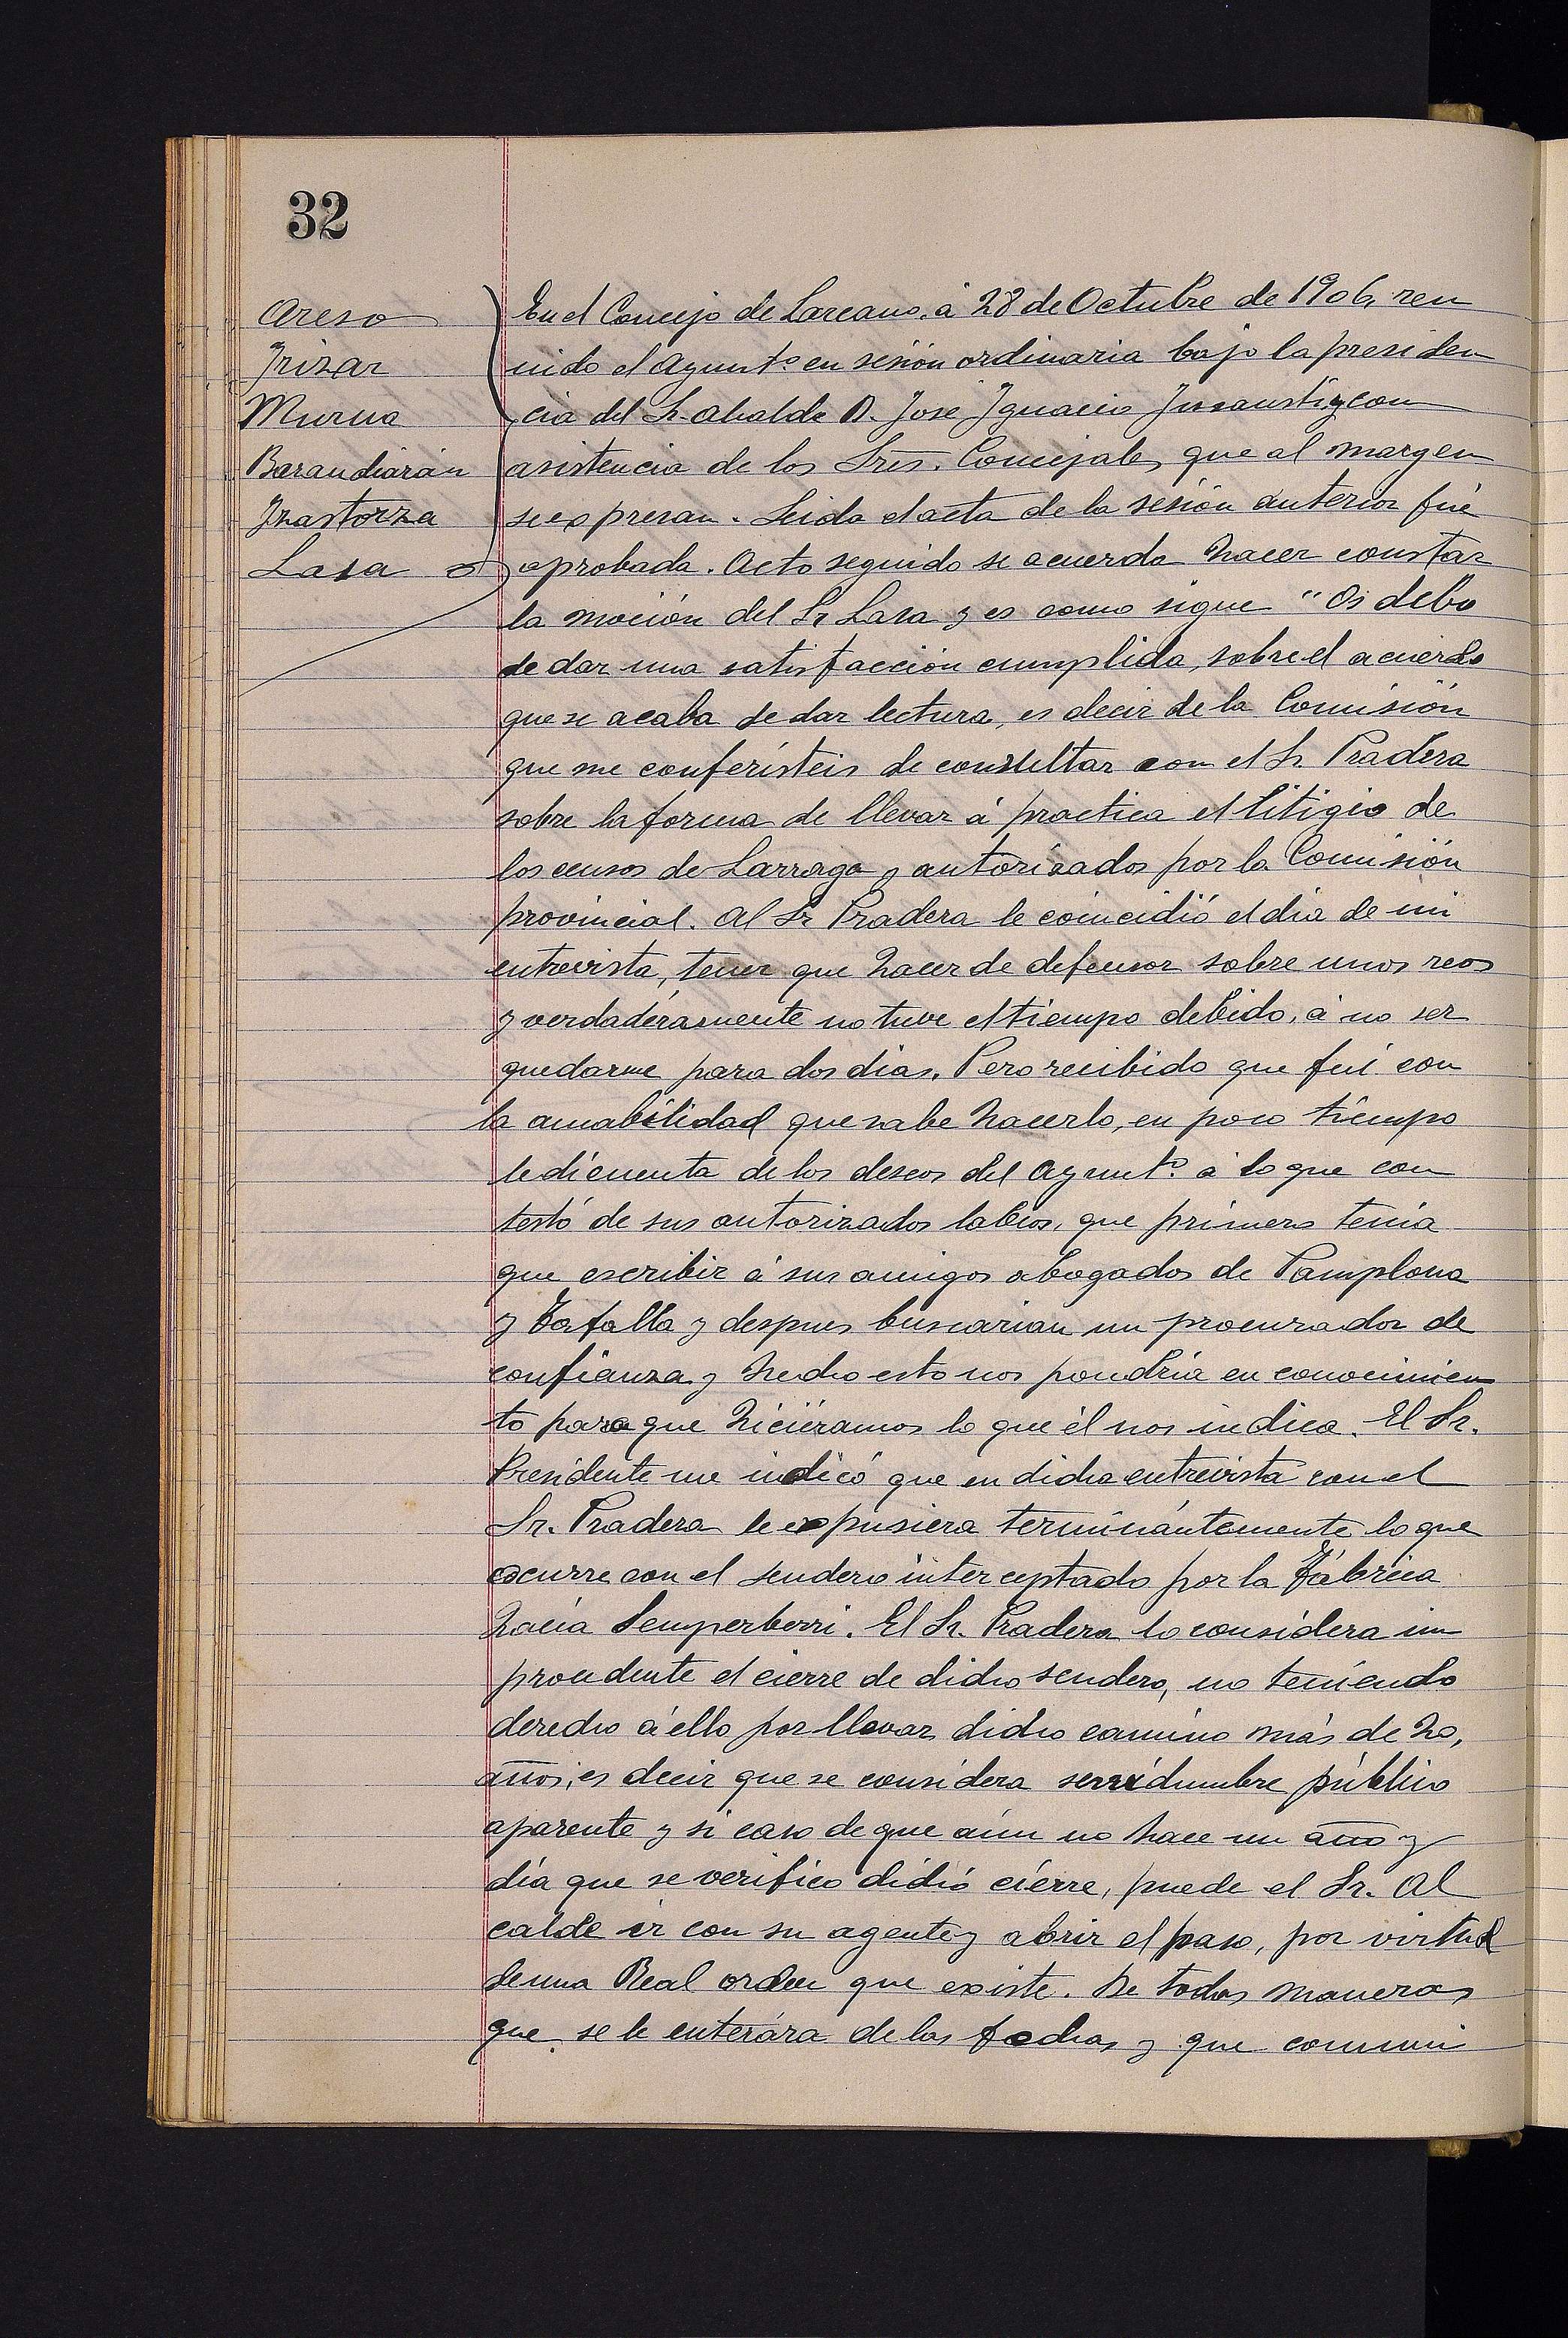 32
Areso
Irizar
Murua
Barandiarán
Inastorza
Lasa
En el Concejo de Lazcano, á 28 de Octubre de 1906, reu
nido el Ayunt.º en sesión ordinaria bajo la presiden
cia del Sr. Alcalde D. José Ignacio Insausti y con
asistencia de los Sres. Concejales que al margen
se expresan. Leida el acta de la sesión anterior fué
aprobada. Acto seguido se acuerda hacer constar
la moción del Sr Lasa y es como sigue "Os debo
de dar una satisfacción cumplida, sobre el acuerdo
que se acaba de dar lectura, es decir de la Comisión
que me conferísteis de consultar con el Sr. Pradera
sobre la forma de llevar á practica el litigio de
los censos de Larraga y autorizados por la Comisión
provincial. Al Sr Pradera le coincidió el dia de mi
entrevista, tener que hacer de defensor sobre unos reos
y verdadéramente no tuve el tiempo debido, á no ser
quedarme para dos dias. Pero recibido que fuí con
la amabilidad que sabe hacerlo, en poco tiempo
le dí cuenta de los deseos del Ayunt.º á lo que con
testó de sus autorizados labios, que primero tenia
que escribir á sus amigos abogados de Pamplona
y Tafalla y despues buscarian un procurador de
confianza y hecho esto nos pondría en conocimien
to para que hiciéramos lo que él nos indica. El Sr.
Presidente me indicó que en dicha entrevista con el
Sr. Pradera le expusiera terminántemente lo que
ocurre con el sendero interceptado por la Fábrica
hácia Semperberri. El Sr. Pradera lo considera im
procedente el cierre de dicho sendero, no teniendo
derecho á ello por llevar dicho camino más de 20,
años, es decir que se considera servidumbre público
aparente y si caso de que aún no hace un año y
día que se verifico dichó ciérre, puede el Sr. Al
calde ir con su agente y abrir el paso, por virtud
de una Real orden que existe. De todas maneras
que se le enterára de las fechas y que comuni